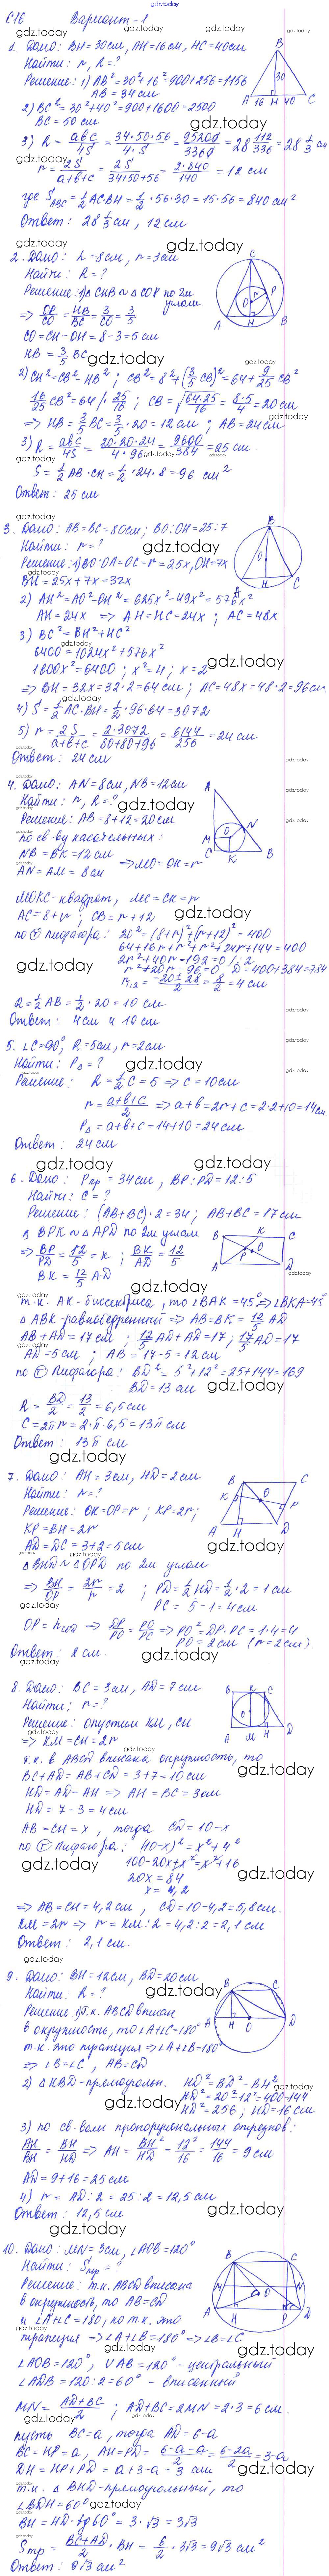 gdz.today
С16 Вариант-1
1. Дано: BH=30см, AH=16см, HC=40см
Найти: r, R=?
Решение: 1) AB²=30²+16²=900+256=1156
AB=34см
2) BC²=30²+40²=900+1600=2500
BC=50 см
3) R=abc/4S=34·50·56/4·S=95200/3360=28 112/336=28 1/3 см
r=2S/a+b+c=2S/34+50+56=2·840/140=12 см
где S_ABC=1/2 AC·BH=1/2·56·30=15·56=840см²
Ответ: 28 1/3 см, 12см
2. Дано: h=8см, r=3см
Найти: R=?
Решение: 1) ΔCHB~ΔCOP по 2м углам
⇒ OP/CO=HB/BC=3/CO=3/5
CO=CH-OH=8-3=5см
HB=3/5 BC
2) CH²=CB²-HB²; CB²=8²+(3/5 CB)²=64+9/25 CB²
16/25 CB²=64 /·25/16; CB=√64·25/16=8·5/4=20см
⇒ HB=3/5 BC=3/5·20=12см; AB=24см
3) R=abc/4S=20·20·24/4·96=9600/384=25см
S=1/2 AB·CH=1/2·24·8=96 см²
Ответ: 25 см
3. Дано: AB=BC=80см; BO:OH=25:7
Найти: r=?
Решение: 1) BO=OA=OC=r=25x, OH=7x
BH=25x+7x=32x
2) AH²=AO²-OH²=625x²-49x²=576x²
AH=24x ⇒ AH=HC=24x; AC=48x
3) BC²=BH²+HC²
6400=1024x²+576x²
1600x²=6400; x²=4; x=2
⇒ BH=32x=32·2=64см; AC=48x=48·2=96см
4) S=1/2 AC·BH=1/2·96·64=3072
5) r=2S/a+b+c=2·3072/80+80+96=6144/256=24см
Ответ: 24 см
4. Дано: AN=8см, NB=12см
Найти: r, R=?
Решение: AB=8+12=20см
по св-ву касательных:
NB=BK=12см
AN=AM=8см
⇒ MO=OK=r
MOKC-квадрат, MC=CK=r
AC=8+r; CB=r+12
по т Пифагора: 20²=(8+r)²+(r+12)²=400
64+16r+r²+r²+24r+144=400
2r²+40r-192=0 /:2
r²+20r-96=0, D=400+384=784
r₁,₂=-20±28/2=8/2=4см
R=1/2 AB=1/2·20=10см
Ответ: 4см и 10см
5. ∠C=90°, R=5см, r=2см
Найти: PΔ=?
Решение: R=1/2 C=5 ⇒ C=10см
r=a+b+c/2 ⇒ a+b=2r+c=2·2+10=14см
PΔ=a+b+c=14+10=24см
Ответ: 24см
6. Дано: Pпр=34см, BP:PD=12:5
Найти: C=?
Решение: (AB+BC)·2=34; AB+BC=17см
Δ BPK~ΔAPD по 2м углам
⇒ BP/PD=12/5=k; BK/AD=12/5
BK=12/5 AD
т.к. AK-биссектриса, то ∠BAK=45° ⇒ ∠BKA=45°
ΔABK-равнобедренный ⇒ AB=BK=12/5 AD
AB+AD=17см; 12/5 AD+AD=17; 17/5 AD=17
AD=5см; AB=17-5=12см
по т Пифагора: BD²=5²+12²=25+144=169
BD=13см
R=BD/2=13/2=6,5см
C=2πr=2·π·6,5=13πсм
Ответ: 13π см
7. Дано: AH=3см, HD=2см
Найти: r=?
Решение: OK=OP=r; KP=2r;
KP=BH=2r
AD=DC=3+2=5см
ΔBHD~ΔOPD по 2м углам
⇒ BH/OP=2r/r=2; PD=1/2 HD=1/2·2=1см
PC=5-1=4см
OP=h_COD ⇒ DP/PO=PO/PC ⇒ PO²=DP·PC=1·4=4
PO=2см (r=2см)
Ответ: 2см.
8. Дано: BC=3см, AD=7см
Найти: r=?
Решение: опустим KM, CH
⇒ KM=CH=2r
т.к. в ABCD вписана окружность, то
BC+AD=AB+CD=3+7=10см
HD=AD-AH ⇒ AH=BC=3см
HD=7-3=4см
AB=CH=x, тогда CD=10-x
по т Пифагора: (10-x)²=x²+4²
100-20x+x²=x²+16
20x=84
x=4,2
⇒ AB=CH=4,2см, CD=10-4,2=5,8см.
KM=2r ⇒ r=KM:2=4,2:2=2,1см
Ответ: 2,1см.
9. Дано: BH=12см, BD=20см
Найти: R=?
Решение: 1) т.к. ABCD вписан
в окружность, то ∠A+∠C=180°
т.к. это трапеция ⇒ ∠A+∠B=180°
⇒ ∠B=∠C, AB=CD
2) ΔHBD-прямоугольн. HD²=BD²-BH²
HD²=20²-12²=400-144
HD²=256; HD=16см
3) по св-вам пропорциональных отрезков:
AH/BH=BH/HD ⇒ AH=BH²/HD=12²/16=144/16=9см
AD=9+16=25см
4) r=AD:2=25:2=12,5см
Ответ: 12,5см
10. Дано: MN=3см, ∠AOB=120°
Найти: Sтр=?
Решение: т.к. ABCD вписана
в окружность, то AB=CD
и ∠A+∠C=180, но т.к. это
трапеция ⇒ ∠A+∠B=180° ⇒ ∠B=∠C
∠AOB=120°, ∪AB=120°-центральный
∠ADB=120:2=60°-вписанный
MN=AD+BC/2; AD+BC=2MN=2·3=6см.
пусть BC=a, тогда AD=6-a
BC=HP=a, AH=PD=6-a-a/2=6-2a/2=3-a
DH=HP+PD=a+3-a=3 см
т.к. ΔBHD-прямоугольный, то
∠BDH=60°
BH=HD·tg60°=3·√3=3√3
Sтр=BC+AD/2·BH=6/2·3√3=9√3 см²
Ответ: 9√3 см²